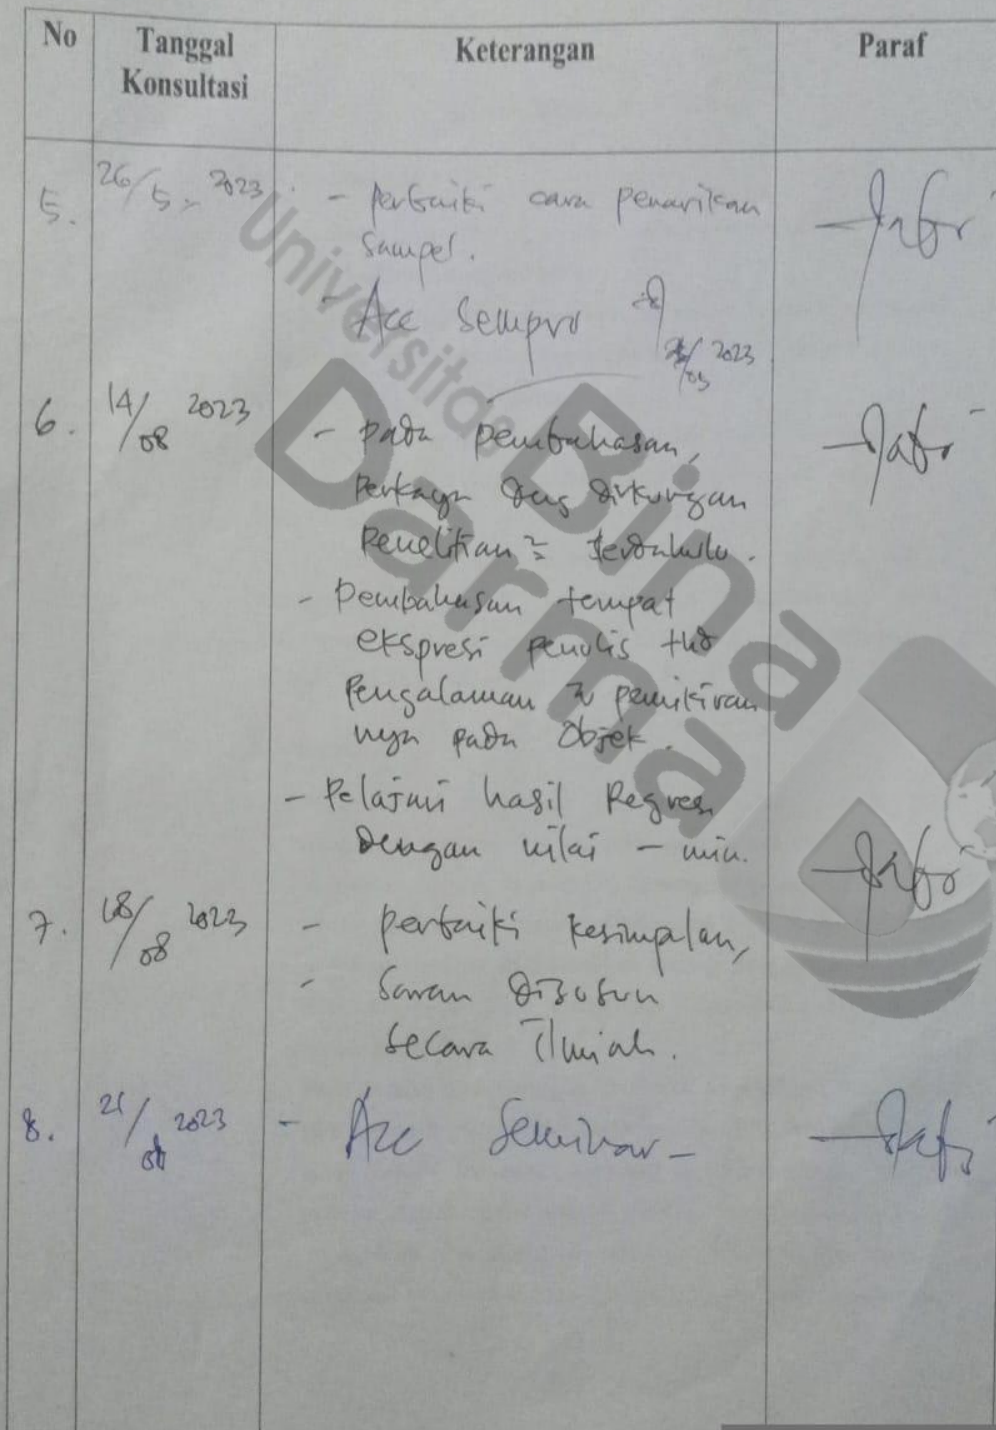 No Tanggal Konsultasi Keterangan Paraf
5. 26/5-2023 - Perbaiki cara penarikan
sampel.
- Acc Sempro
2023
6. 14/08 2023 - pada pembahasan,
perkaya dng dukungan
Penelitian2 terdahulu.
- Pembahasan tempat
ekspresi penulis thd
Pengalaman & pemikiran
nya pada Objek.
- Pelajari hasil Regresi
dengan nilai - min.
7. 18/08 2023 - perbaiki kesimpulan,
- Saran disusun
secara Ilmiah.
8. 21/08 2023 - Acc Seminar -
Universitas
Bina
Darma